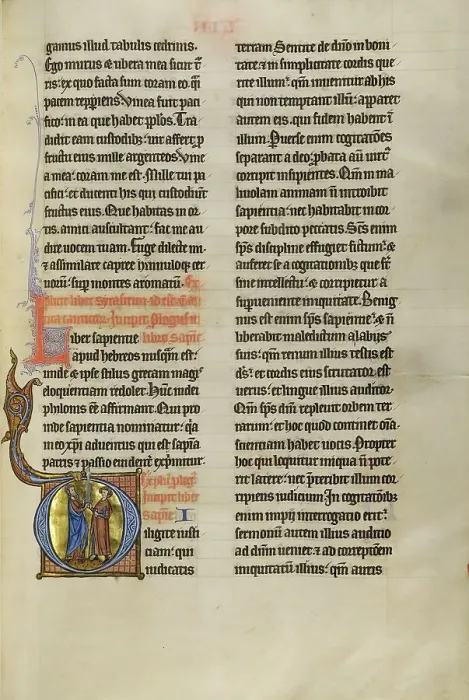 gamus illud tabulis cedrinis.
Ego murus & ubera mea sicut tur
ris: ex quo facta sum coram eo q̄si
pacem reppiens. Vinea fuit paci
fico: in ea que habet pplos. Tra
didit eam custodib; uir affert p
fructu eius mille argenteos. Vine
a mea: coram me est. Mille tui pa
cifici: et ducenti his qui custodiunt
fructus eius. Que habitas in or
tis. amici auscultant: fac me au
dire uocem tuam. Fuge dilecte mi.
& assimilare capree himnuloq; cer
uorū: sup montes aromatū. Ex
plicit liber
cantico. Incipit Plogus i
Liber sapientie libro sapie
apud hebreos nusq̄m est:
unde & ipse stilus grecam magis
eloquentiam redolet. Hūc iudei
philonis eē affirmant. Qui pro
inde sapientia nominatur: q̄a
in eo xpi aduentus qui est sapia
patris & passio euidenter exp̄mitur.
Explic plogꝰ
Incipit liber
Sapie I
Diligite iusti
ciam: qui
iudicatis
terram. Sentite de dn̄o in boni
tate: & in simplicitate cordis que
rite illum: qm̄ inuenitur ab his
qui non temptant illū: apparet
autem eis. qui fidem habent ī
illum. Peruerse enim cogitatōes
separant a deo: pbata aū uirtꝰ
corripit insipientes. Qm̄ in ma
liuolam animam n̄ introibit
sapientia: nec habitabit in cor
pore subdito peccatis. Scs enim
sps discipline effugiet fictum: &
auferet se a cogitationib; que sr̄t
sine intellectu: & corripietur a
superueniente iniquitate. Benig
nus est enim sps sapientie: & n̄
liberabit maledictum a labijs
suis: qm̄ renum illius testis est
ds: et cordis eius scrutator est
uerus: et lingue illius auditor.
Qm̄ sps dn̄i repleuit orbem ter
rarum: et hoc quod continet oīa.
scientiam habet uocis. Propter
hoc qui loquitur iniqua n̄ pote
rit latere: nec preteribit illum cor
ripiens iudicium. In cogitatōib;
enim impij interrogatio erit:
sermonū autem illius auditio
ad dūm ueniet: & ad correptōem
iniquitatū illius: qm̄ auris